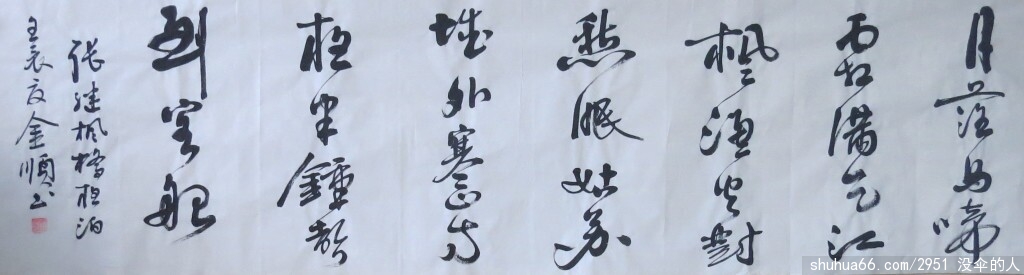 月落烏啼
霜满天江
枫渔火對
愁眠姑苏
城外寒山寺
夜半鐘聲
到客船
张继枫橋夜泊
壬辰夏金順书
shuhua66.com/2951 没伞的人